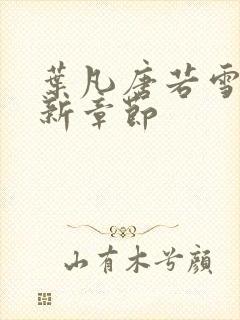 葉凡唐若雪
新章節
山有木兮顏